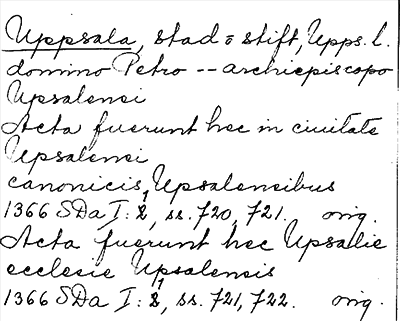 Uppsala, stad o stift, Upps. l.
domino Petro -- archiepiscopo
Upsalensi
Acta fuerunt hec in ciuitate
Upsalensi
canonicis, Upsalensibus
1366 SDa I: 2, ss. 720, 721. orig.
Acta fuerunt hec Upsalie
ecclesie Upsalensis
1366 SDa I: 2, ss. 721, 722. orig.